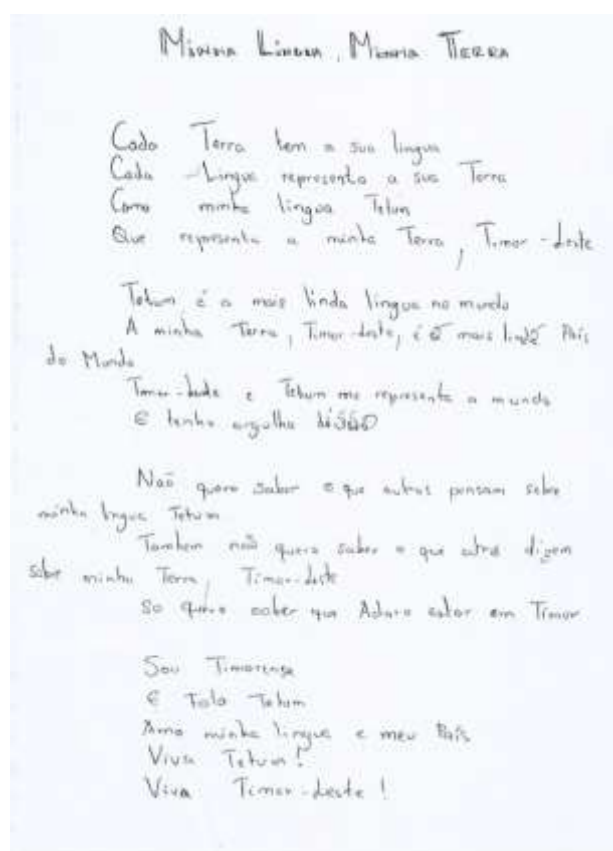 Minha Língua, Minha Terra
Cada Terra tem a sua lingua
Cada Lingua representa a sua Terra
Como minha lingua Tetum
Que representa a minha Terra, Timor-Leste
Tetum é a mais linda lingua no mundo
A minha Terra, Timor-Leste, é o mais lindo País
do Mundo
Timor-Leste e Tetum me representa a mundo
E tenho orgulho disso
Naõ quero saber o que outros pensam sobre
minha lingua Tetum
Tambem naõ quero saber o que outros dizem
sobre minha Terra, Timor-Leste
So quero saber que Adoro estar em Timor
Sou Timorense
E Falo Tetum
Amo minha lingua e meu País
Viva Tetum!
Viva Timor-Leste!